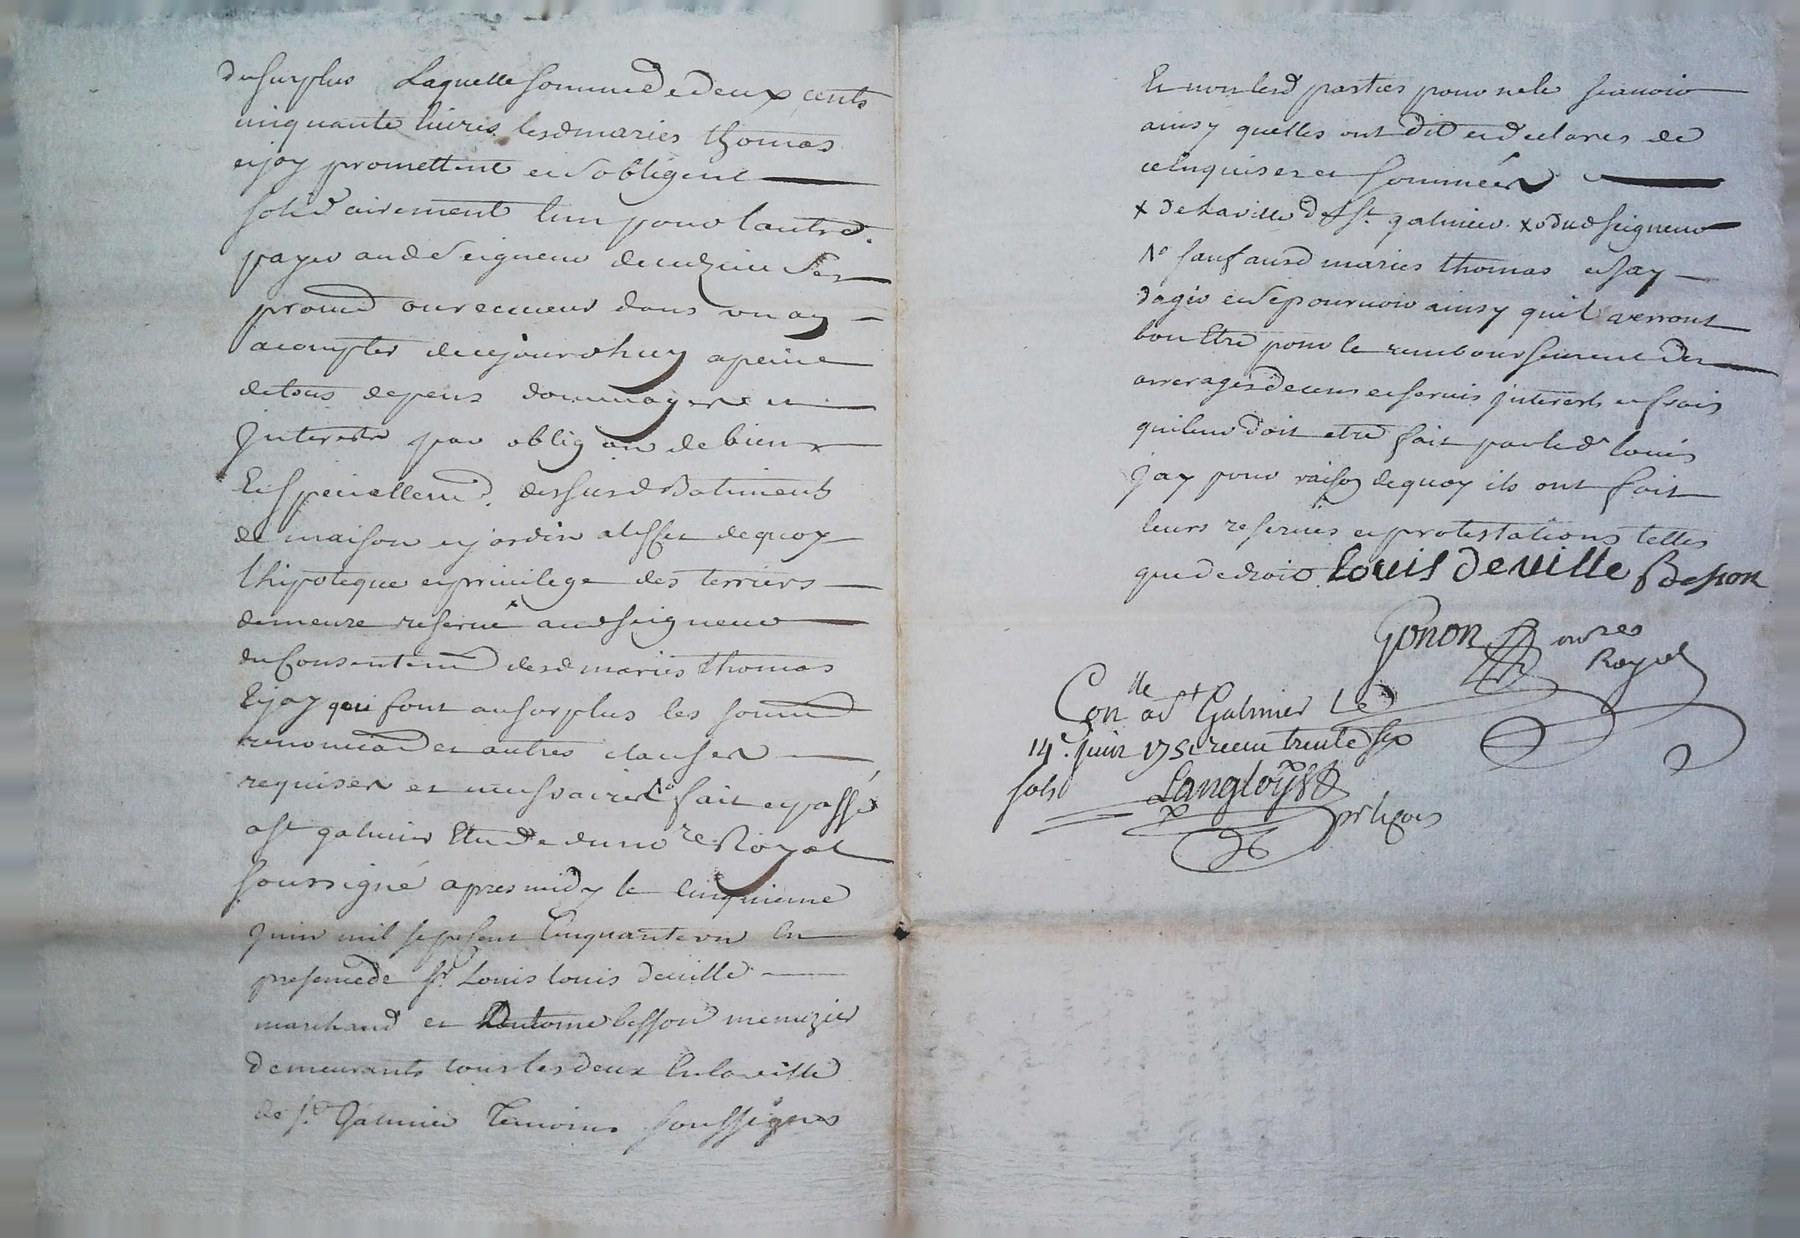 du surplus Laquelle somme de deux cents
cinquante livres lesd maries thomas
et jay promettent et sobligent
solidairement lun pour lautre
payer aud Seigneur
procud ou receveur dans un an
a compter de cejourdhuy a peine
de tous depens dommages et
Interests par oblig on de biens
Et speciallemd dessusd Batiments
de maison et jardin a leffet de quoy
lhipoteque et privilege des terriers
demeure reservé aud seigneur
du Consentemd desd maries thomas
Et jay qui font au surplus les soumd
renonciaons et autres clauses
requises et necessaires No fait et passé
a st galmier Etude du no re Royal
soussigné apres midy le cinquieme
Juin mil sept cent Cinquante un En
presence de sr Louis louis deville
marchand et Antoine besson menuzier
demeurants tous les deux En la ville
de st Galmier Temoins soussignes
Et non lesd parties pour ne le scavoir
ainsy quelles ont dit et declares de
ce Enquises et sommées
x de la ville de st galmier x dud seigneur
No sauf ausd maries thomas et jay
dagir et se pourvoir ainsy quil averront
bon Etre pour le remboursement des
arrerages de cens et servis Interests et frais
qui leur doit etre fait par led louis
Jay pour raison de quoy ils ont fait
leurs reserves et protestations telles
que de droit Louis deville Besson
Gonon no re
Royal
Con lle a St Galmier Le
14e. juin 1751 receu trente six
sols Langloys